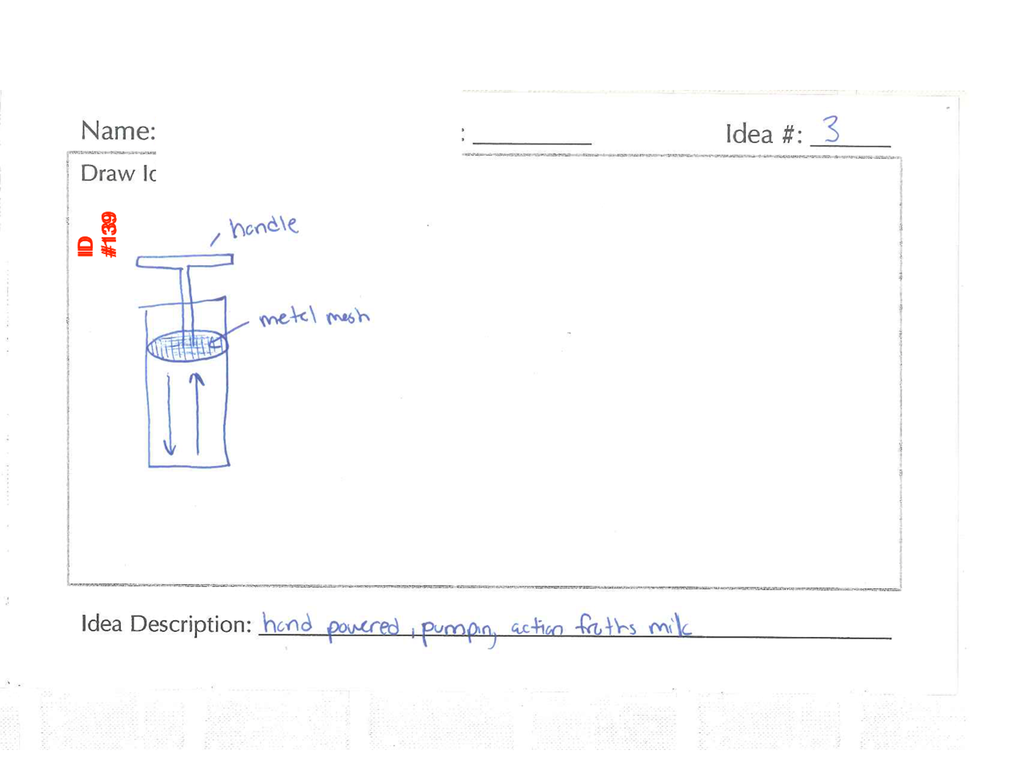 Name: : Idea #: 3
Draw Id
ID
#139
handle
metal mesh
Idea Description: hand powered, pumping action froths milk